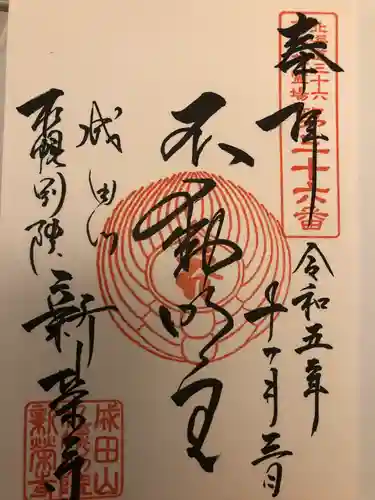 奉拝
第二十六番
令和五年
十一月三日
不動明王
成田山
札幌別院
新栄寺
成田山
新栄寺